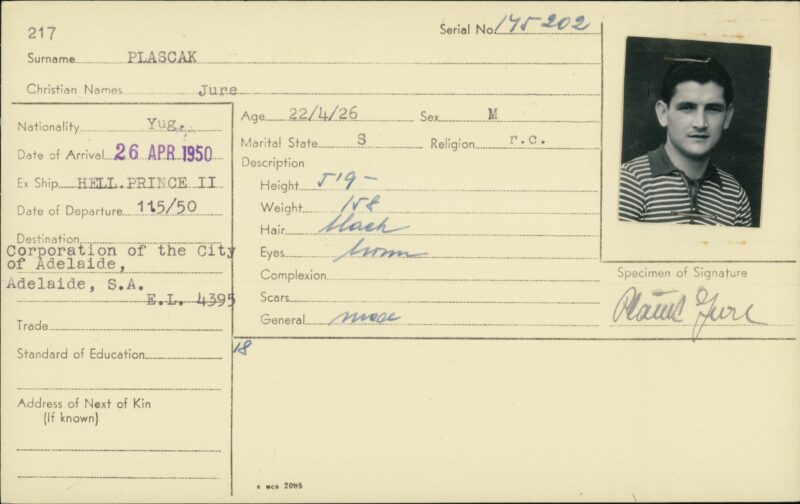 217
Serial No. 175202
Surname PLASCAK
Christian Names Jure
Nationality Yug.
Date of Arrival 26 APR 1950
Ex Ship HELL.PRINCE II
Date of Departure 115/50
Destination
Corporation of the City
of Adelaide,
Adelaide, S.A.
E.L. 4395
Trade
Standard of Education
Address of Next of Kin
(If known)
Age 22/4/26 Sex M
Marital State S Religion r.c.
Description
Height 5'9-
Weight 158
Hair black
Eyes brown
Complexion
Scars
General
18
Specimen of Signature
Jure